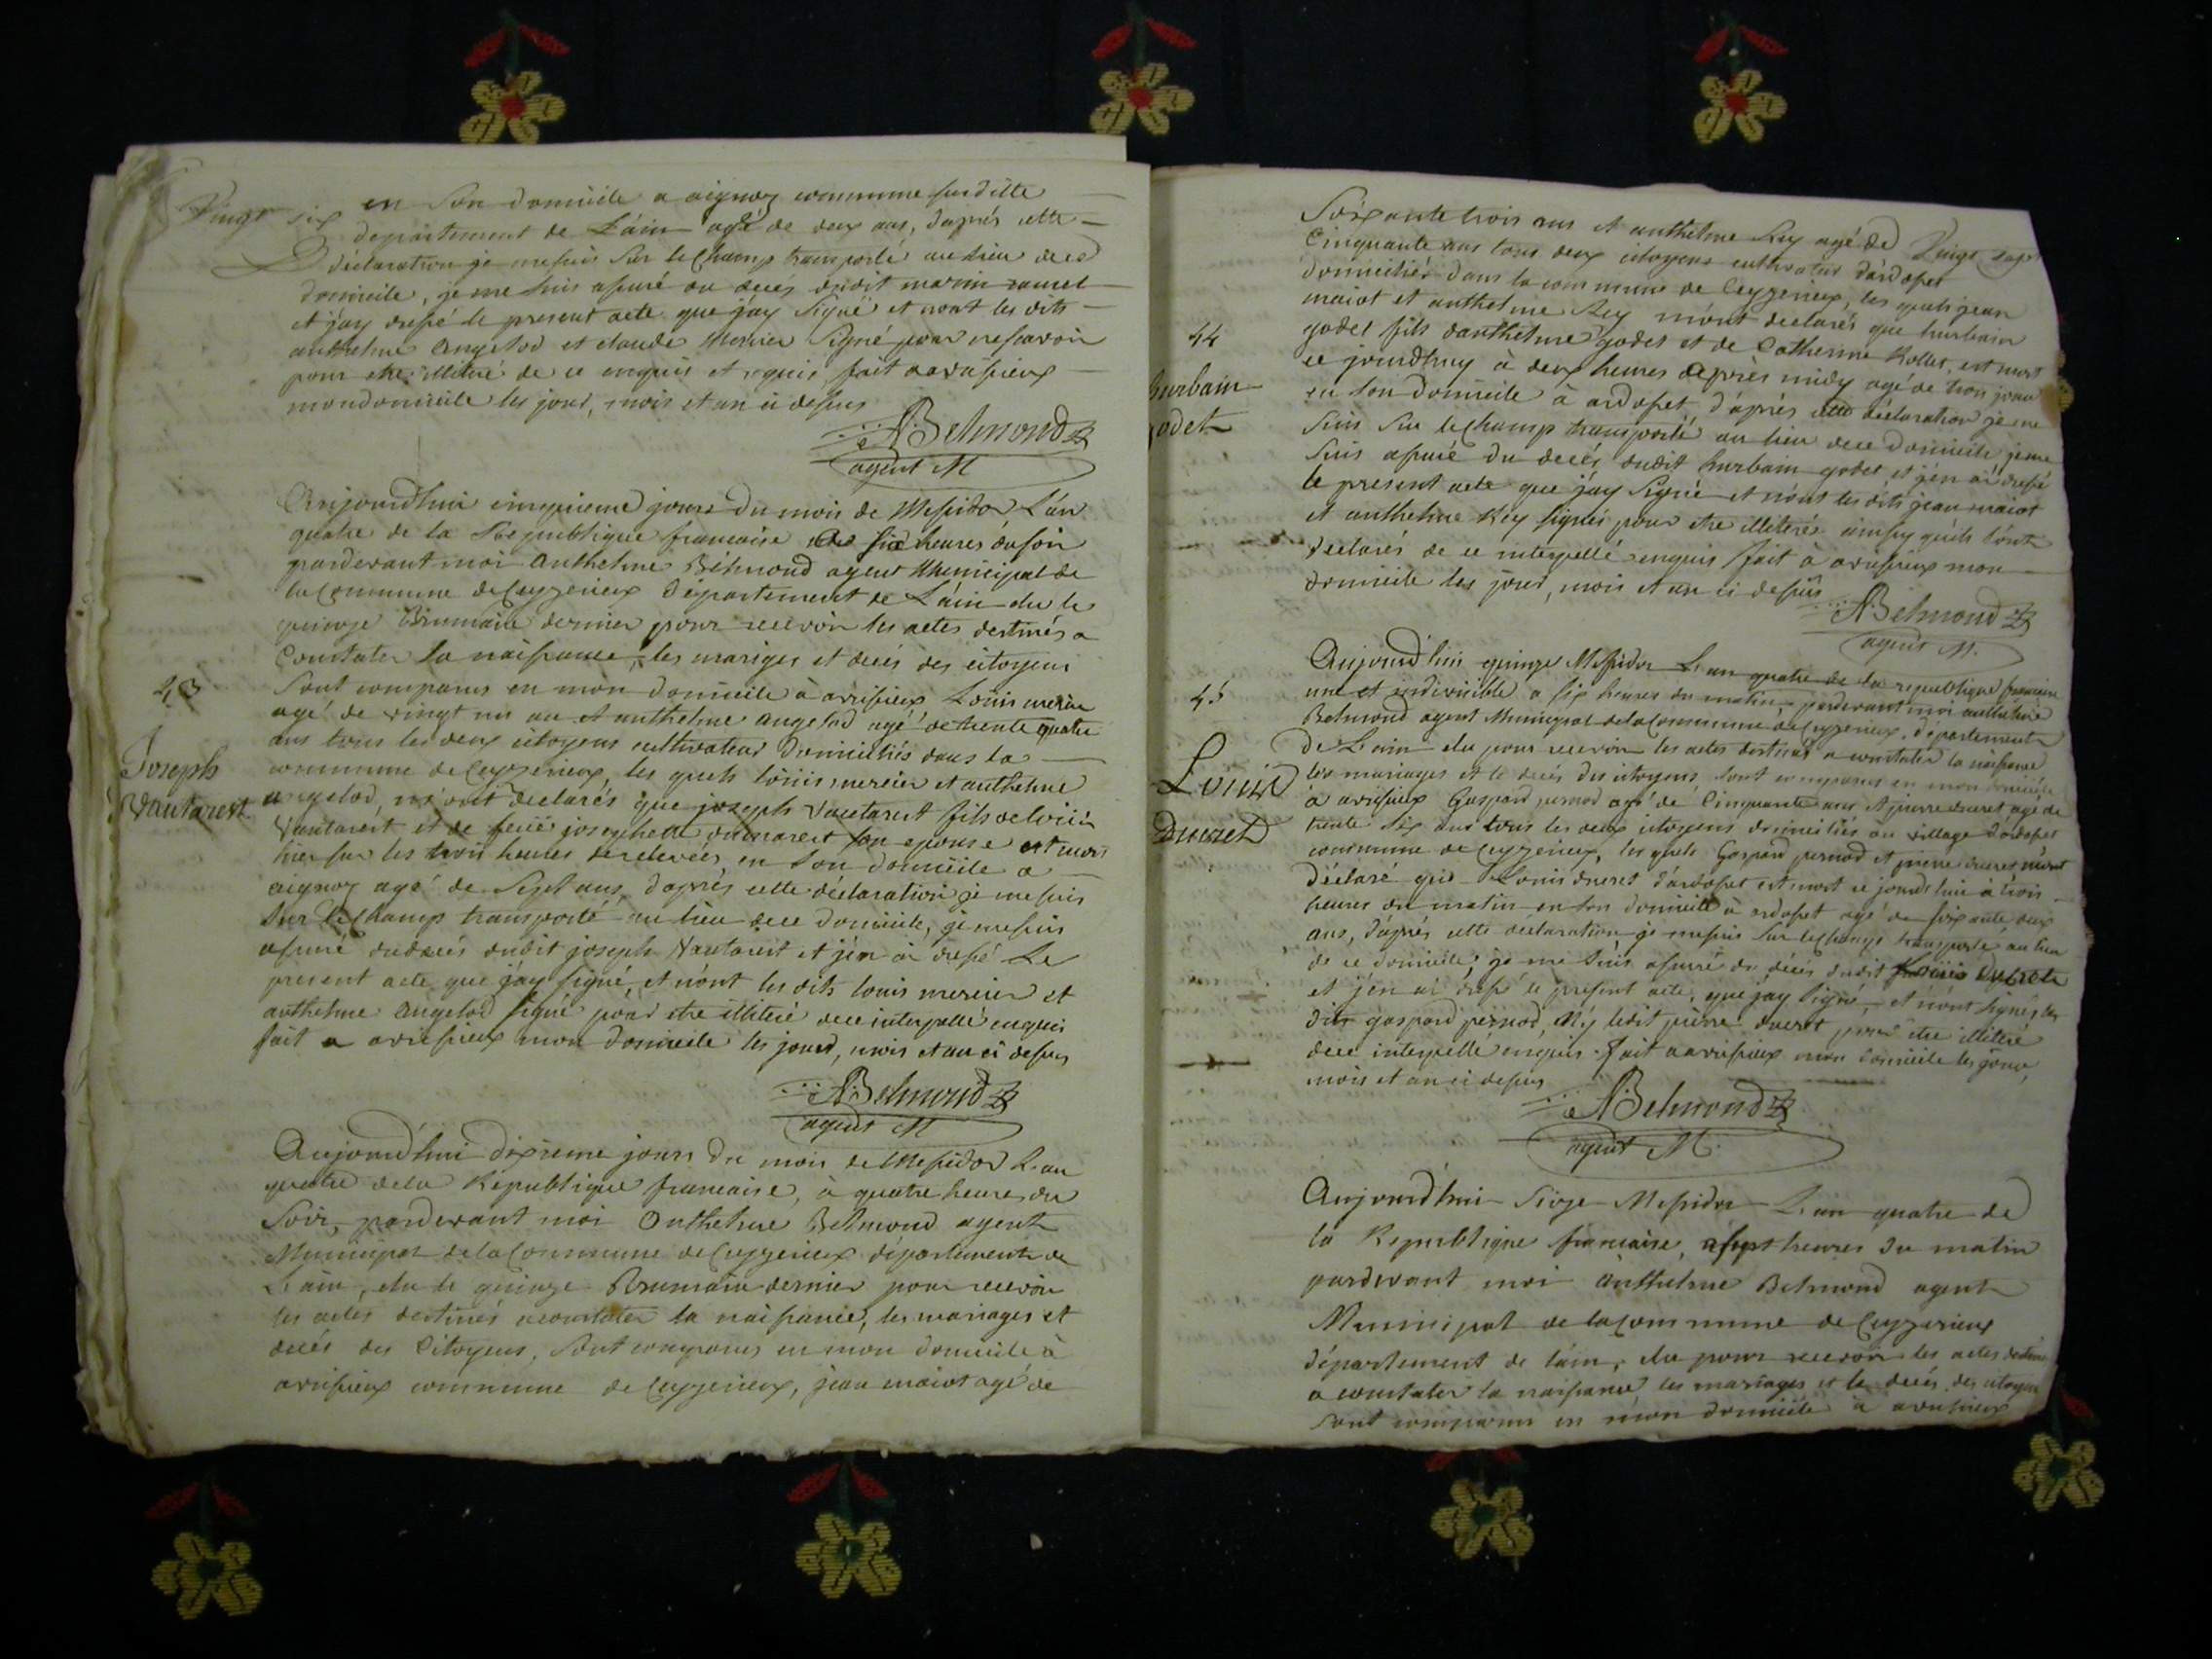 Vingt six
en son domicile a aignoz commune susditte
departement de L'ain agé de deux ans, d'après cette
déclaration je me suis sur le champ transporté au lieu de ce
domicile, je me suis assuré du décés dudit marin
et j'ay dressé le present acte que j'ay signé et n'ont les dits
anthelme angelod et claude mercier signé pour ne scavoir
pour etre illitere de ce enquis et requis, fait a avrissieux
mon domicile les jour, mois et an ci dessus
ABelmond
agent M
43
Joseph
Vautaret
Aujourdhui cinquieme jours du mois de Messidor L'an
quatre de la Republique francaise a six heures du soir
pardevant moi Anthelme Belmond agent Municipal de
la Commune de Ceyzerieux Département de L'ain elu le
quinze Brumaire dernier pour recevoir les actes destinés a
Constater la naissance, les mariges et decés des citoyens
sont comparus en mon domicile à avrissieux Louis mercier
agé de vingt un an et anthelme angelod agé de trente quatre
ans tous les deux citoyens cultivateur domiciliés dans la
commune de Ceyzerieux, les quels louis mercier et anthelme
angelod, m'ont declarés que joseph Vautaret fils de louis
Vautaret et de feüe josephette son epouse est mort
hier sur les trois heures de relevées en son domicile a
aignoz agé de Sept ans, d'après cette déclaration je me suis
sur le champ transporté au lieu de ce domicile, je me suis
assuré du decés dudit joseph Vautaret et j'en ai dressé Le
present acte que j'ay signé, et n'ont les dits louis mercier et
anthelme angelod signé pour etre illiteré de ce interpellé enquis
fait a avrissieux mon domicile les jour, mois et an ci dessus
ABelmond
agent M
Aujourdhui dixieme jours du mois de Messidor L'an
quatre de la République francaise, à quatre heures du
Soir, pardevant moi Anthelme Belmond agent
Municipal de la Commune de Ceyzerieux département de
L'ain, elu le quinze Brumaire dernier pour recevoir
les actes destinés a constater la naissance, les mariages et
decés des Citoyens, sont comparus en mon domicile à
avrissieux commune de Ceyzerieux, jean maiot agé de
Vingt sept
soixante trois ans et anthelme Rey agé de
Cinquante ans tous deux citoyens cultivateur d'ardosset
domiciliés dans la commune de Ceyzerieux, les quels jean
maiot et anthelme Rey m'ont declarés que hurbain
44
hurbain
godet
godet fils d'anthelme godet et de Catherine Rollet, est mort
ce jourdhuy à deux heures après midy agé de trois jours
en son domicile à ardosset, d'après cette déclaration je me
suis sur le champ transporté au lieu de ce domicile je me
suis assuré du decés dudit hurbain godet et j'en ai dressé
le present acte que j'ay signé et n'ont les dits jean maiot
et anthelme Rey signés pour etre illiterés ainsy qu'ils l'ont
declarés de ce interpellé enquis fait à avrissieux mon
domicile les jour, mois et an ci dessus
ABelmond
agent M.
45
Louis
Ducret
Aujourd'hui quinze Messidor L'an quatre de la republique francaise
une et indivisible a six heures du matin pardevant moi anthelme
Belmond agent Municipal de la Commune de Ceyzerieux, département
de L'ain elu pour recevoir les actes destinés a constater la naissance
les mariages et le decés des citoyens sont comparus en mon domicile
à avrissieux Gaspard pernod agé de Cinquante ans et pierre ducret agé de
trente six ans tous les deux citoyens domiciliés au village d'ardosset
commune de Ceyzerieux, les quels Gaspard pernod et pierre ducret m'ont
déclaré que Louis ducret d'ardosset est mort ce jourdhui à trois
heures du matin en son domicile à ardosset agé de soixante deux
ans, d'après cette déclaration je me suis sur le champ transporté au lieu
de ce domicile, je me suis assuré du décés dudit Louis Ducret
et j'en ai dressé le present acte, que j'ay signé, et n'ont signés les
dits gaspard pernod, n'y ledit pierre ducret pour etre illiteré
de ce interpellé enquis. fait a avrissieux mon domicile les jour,
mois et an ci dessus
ABelmond
agent M.
Aujourd'hui Sèize Messidor L'an quatre de
la République francaise, a sept heures du matin
pardevant moi anthelme Belmond agent
Municipal de la commune de Ceyzerieux
département de l'ain, elu pour recevoir les actes destinés
a constater la naissance les mariages et le decés des citoyen
sont comparus en mon domicile à avrissieux